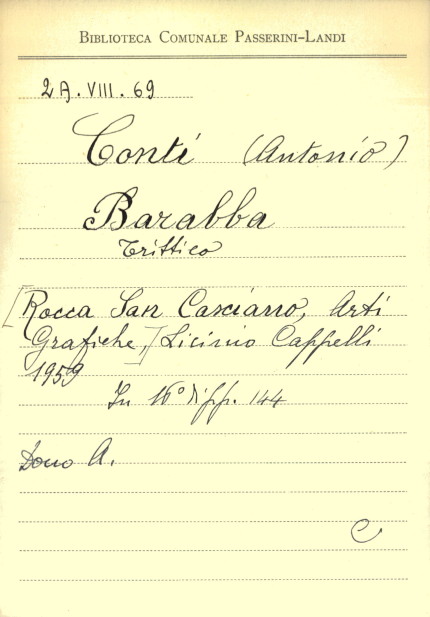 BIBLIOTECA COMUNALE PASSERINI-LANDI
2A.VIII.69
Conti (Antonio)
Barabba
Trittico
[Rocca San Casciano, Arti
Grafiche,] Licinio Cappelli
1959
In 16° di pp. 144
Dono A.
C